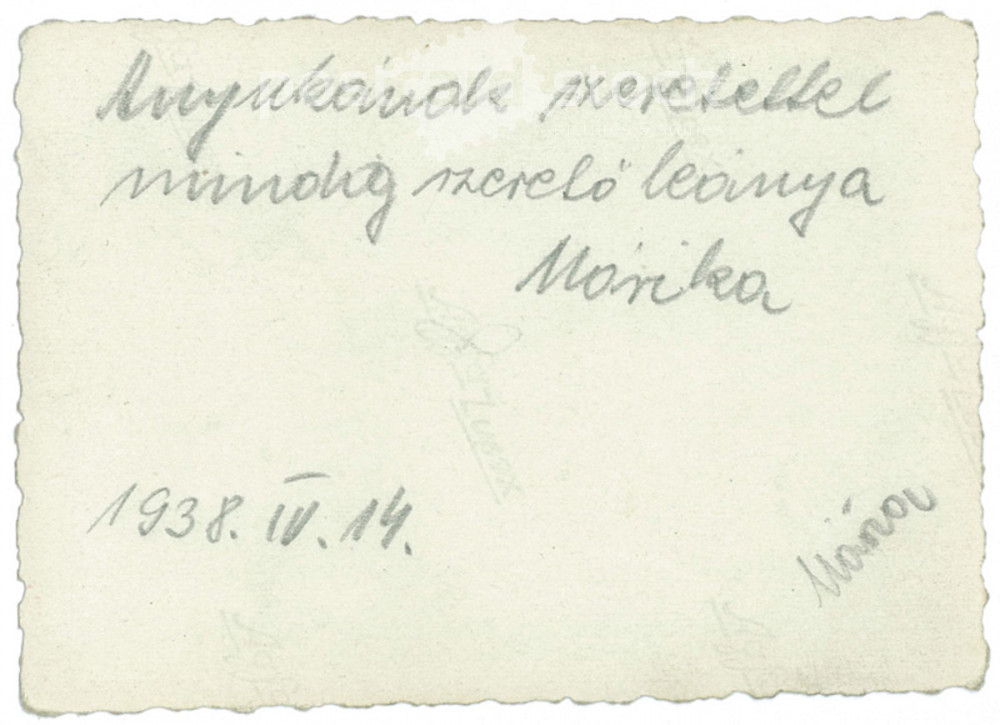 Anyukának szeretettel
mindég szerető leánya
Márika
1938. IV. 14.